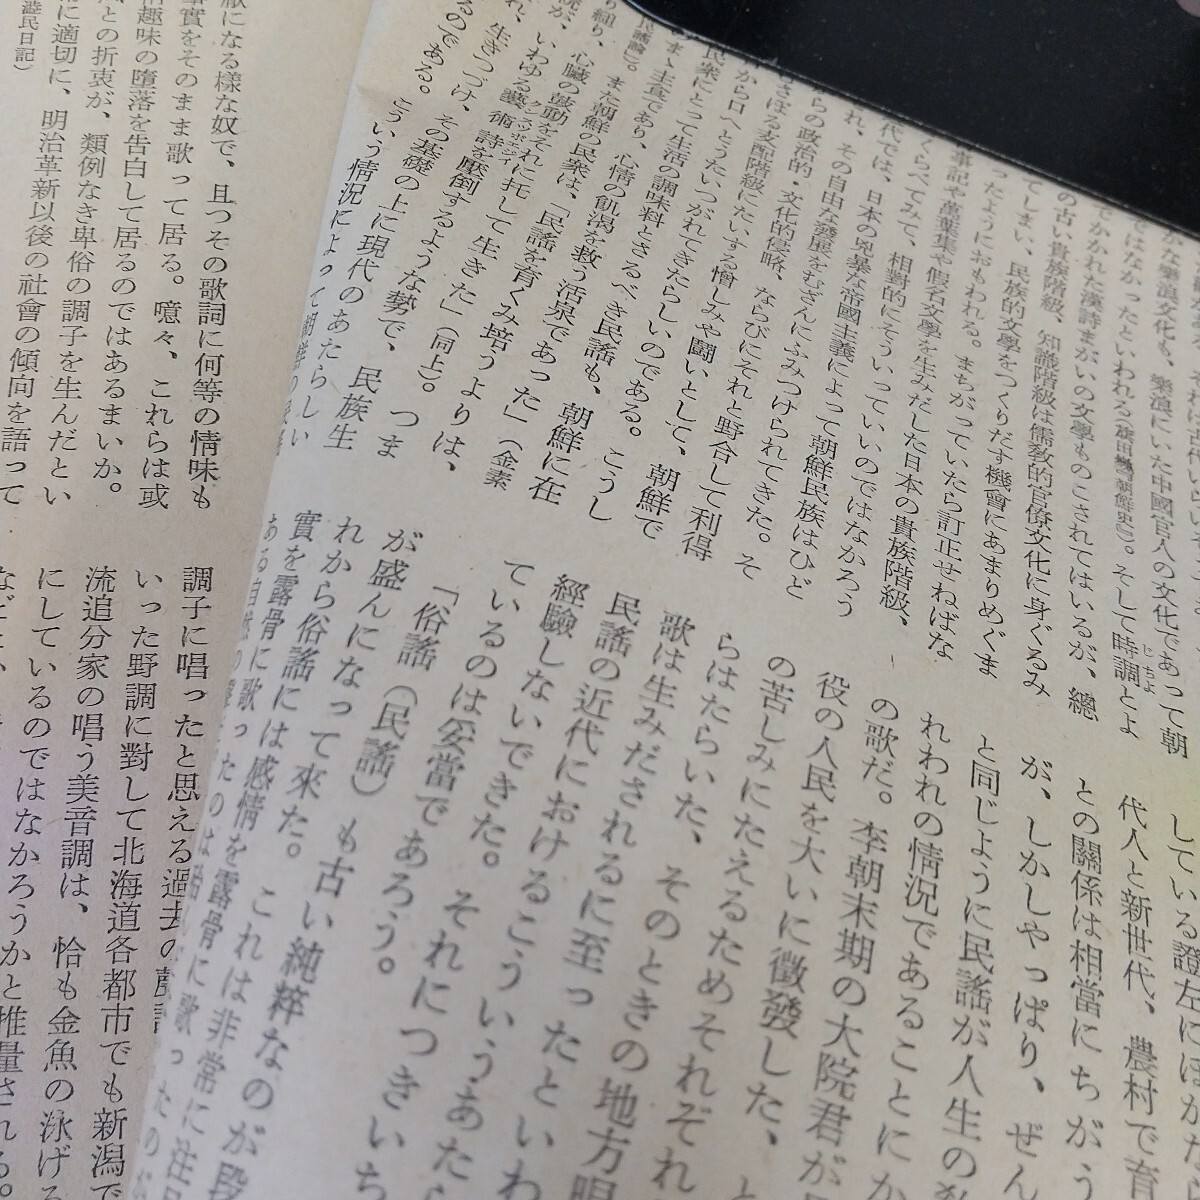 な樂浪文化も、樂浪にいた中國官人の文化であって朝
ではなかったといわれる(旗田巍「朝鮮史」)。そして時調とよ
じちょ
でかかれた漢詩まがいの文學ものこされてはいるが、總
の古い貴族階級、知識階級は儒教的官僚文化に身ぐるみ
てしまい、民族的文學をつくりだす機會にあまりめぐま
ったようにおもわれる。まちがっていたら訂正せねばな
事記や萬葉集や假名文學を生みだした日本の貴族階級、
くらべてみて、相對的にそういっていいのではなかろう
代では、日本の兇暴な帝國主義によって朝鮮民族はひど
れ、その自由な發展をむざんにふみつけられてきた。そ
らの政治的・文化的侵略、ならびにそれと野合して利得
さぼる支配階級にたいする憎しみや闘いとして、朝鮮で
から口へとうたいつがれてきたらしいのである。こうし
民衆にとって生活の調味料とさるべき民謠も、朝鮮に在
まゝ主食であり、心情の飢渇を救う活泉であった」(金素
民謠論)。
また朝鮮の民衆は、「民謠を育くみ培うよりは、
り紐り、心臓の鼓動をそれに托して生きた」(同上)。つま
いわゆる藝術詩を壓倒するような勢で、民族生
れ、生きつづけ、その基礎の上に現代のあたらしい
るのである。こういう情況によって
している證左にほかな
代人と新世代、農村で育
との關係は相當にちがう
が、しかしやっぱり、ぜん
と同じように民謠が人生の
れわれの情況であることにか
の歌だ。李朝末期の大院君が
役の人民を大いに徴發した、と
の苦しみにたえるためそれぞれ
らはたらいた、そのときの地方唄
歌は生みだされるに至ったといわ
民謠の近代におけるこういうあた
經驗しないできた。それにつきいち
ているのは妥當であろう。
「俗謠(民謠)も古い純粹なのが段
が盛んになって來た。これは非常に注目
れから俗謠には感情を露骨に歌ったのが
實を露骨に歌
敵になる樣な奴で、且つその歌詞に何等の情味も
事實をそのまま歌って居る。噫々、これらは或
情趣味の墮落を告白して居るのではあるまいか。
との折衷が、類例なき卑俗の調子を生んだとい
に適切に、明治革新以後の社會の傾向を語って
港民日記)
調子に唱ったと思える過去の
いった野調に對して北海道各都市でも新潟で
流追分家の唱う美音調は、恰も金魚の泳げる
にしているのではなかろうかと推量される。